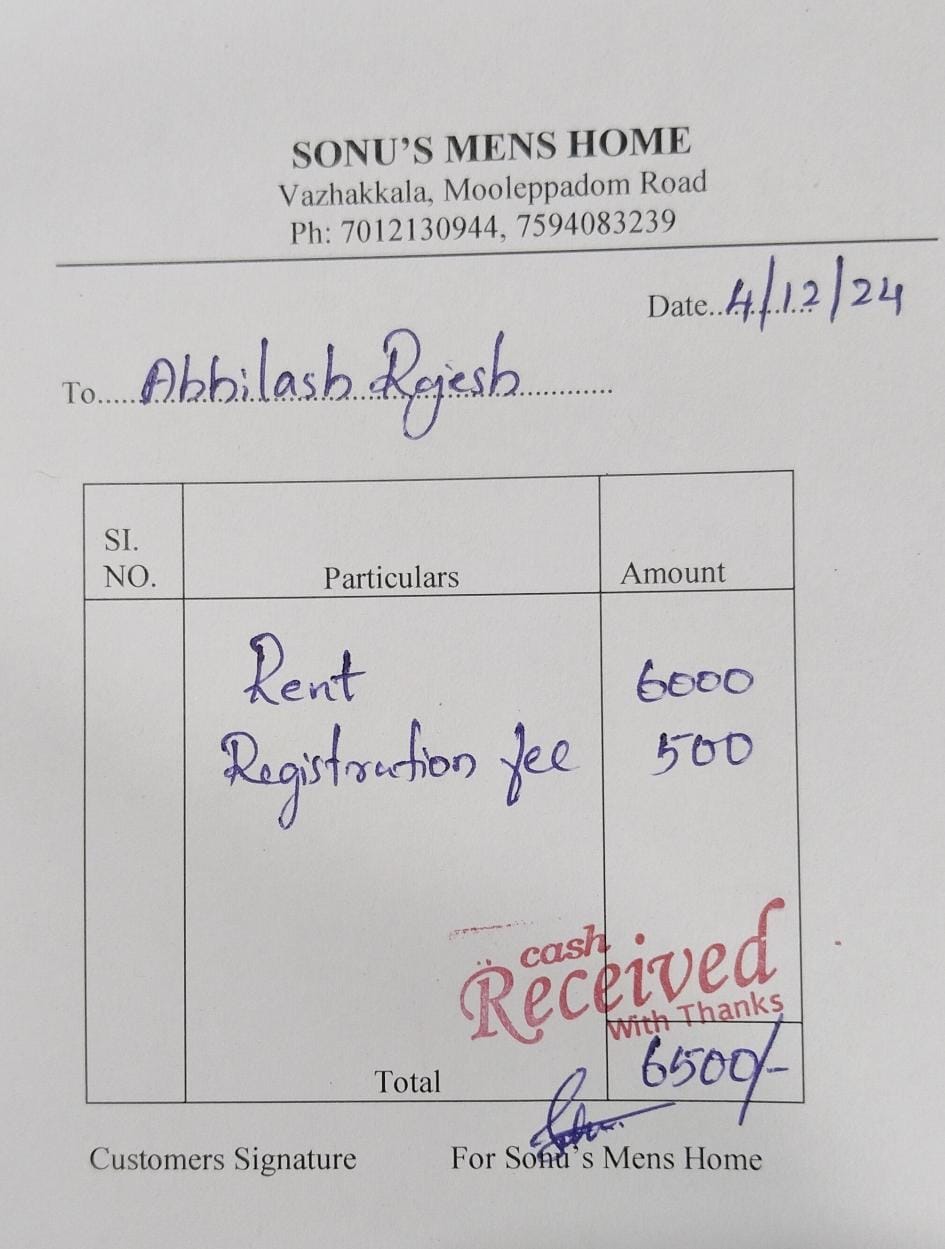 SONU'S MENS HOME
Vazhakkala, Mooleppadom Road
Ph: 7012130944, 7594083239
Date..4/12/24
To.....Abhilash Rajesh............
SI.
NO. Particulars Amount
Rent 6000
Registration fee 500
cash
Received
With Thanks
Total 6500/-
Customers Signature For Sonu's Mens Home